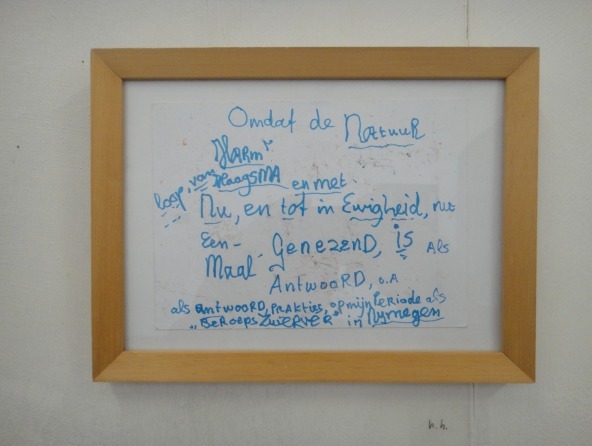 Omdat de Natuur
"Harm"
loop, van HaagsMA en met
Nu, en tot in Ewigheid, nu
Een-
Maal- Genezend, is Als
Antwoord, o.a
als antwoord, prakties, op mijn periode als
"Beroeps Zwerver" in Nymegen
h.h.